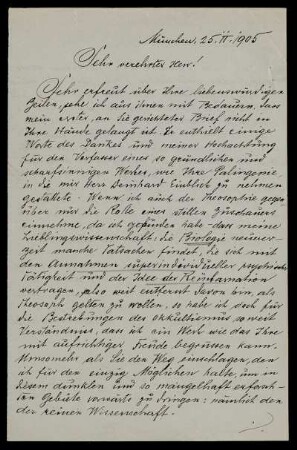 München, 25.II.1905
Sehr verehrter Herr!
Sehr erfreut über Ihre liebenswürdigen
Zeilen, sehe ich aus ihnen mit Bedauern, dass
mein erster, an Sie gerichteter Brief nicht in
Ihre Hände gelangt ist. Er enthielt einige
Worte des Dankes und meiner Hochachtung
für den Verfasser eines so gründlichen und
scharfsinnigen Werkes, wie Ihre Palingenie
in die mir Herr Bernhard Einblick zu nehmen
gestattete. Wenn ich auch der Theosophie gegen-
über nur die Rolle eines stillen Zuschauers
einnehme, da ich gefunden habe dass meine
Lieblingswissenschaft: die Biologie neuerer
Zeit manche Tatsachen findet, die sich mit
den Annahmen superindividueller psychischer
Tätigkeit und der Idee der Reinkarnation
vertragen, also weit entfernt davon bin als
Theosoph gelten zu wollen, so habe ich doch für
die Bestrebungen des Okkultismus so weit
Verständnis, dass ich ein Werk wie das Ihre
mit aufrichtiger Freude begrüssen kann.
Umsomehr als Sie den Weg einschlagen, den
ich für den einzig Möglichen halte, um in
diesem dunklen und so mangelhaft erforsch-
ten Gebiete vorwärts zu dringen: nämlich den
der reinen Wissenschaft.